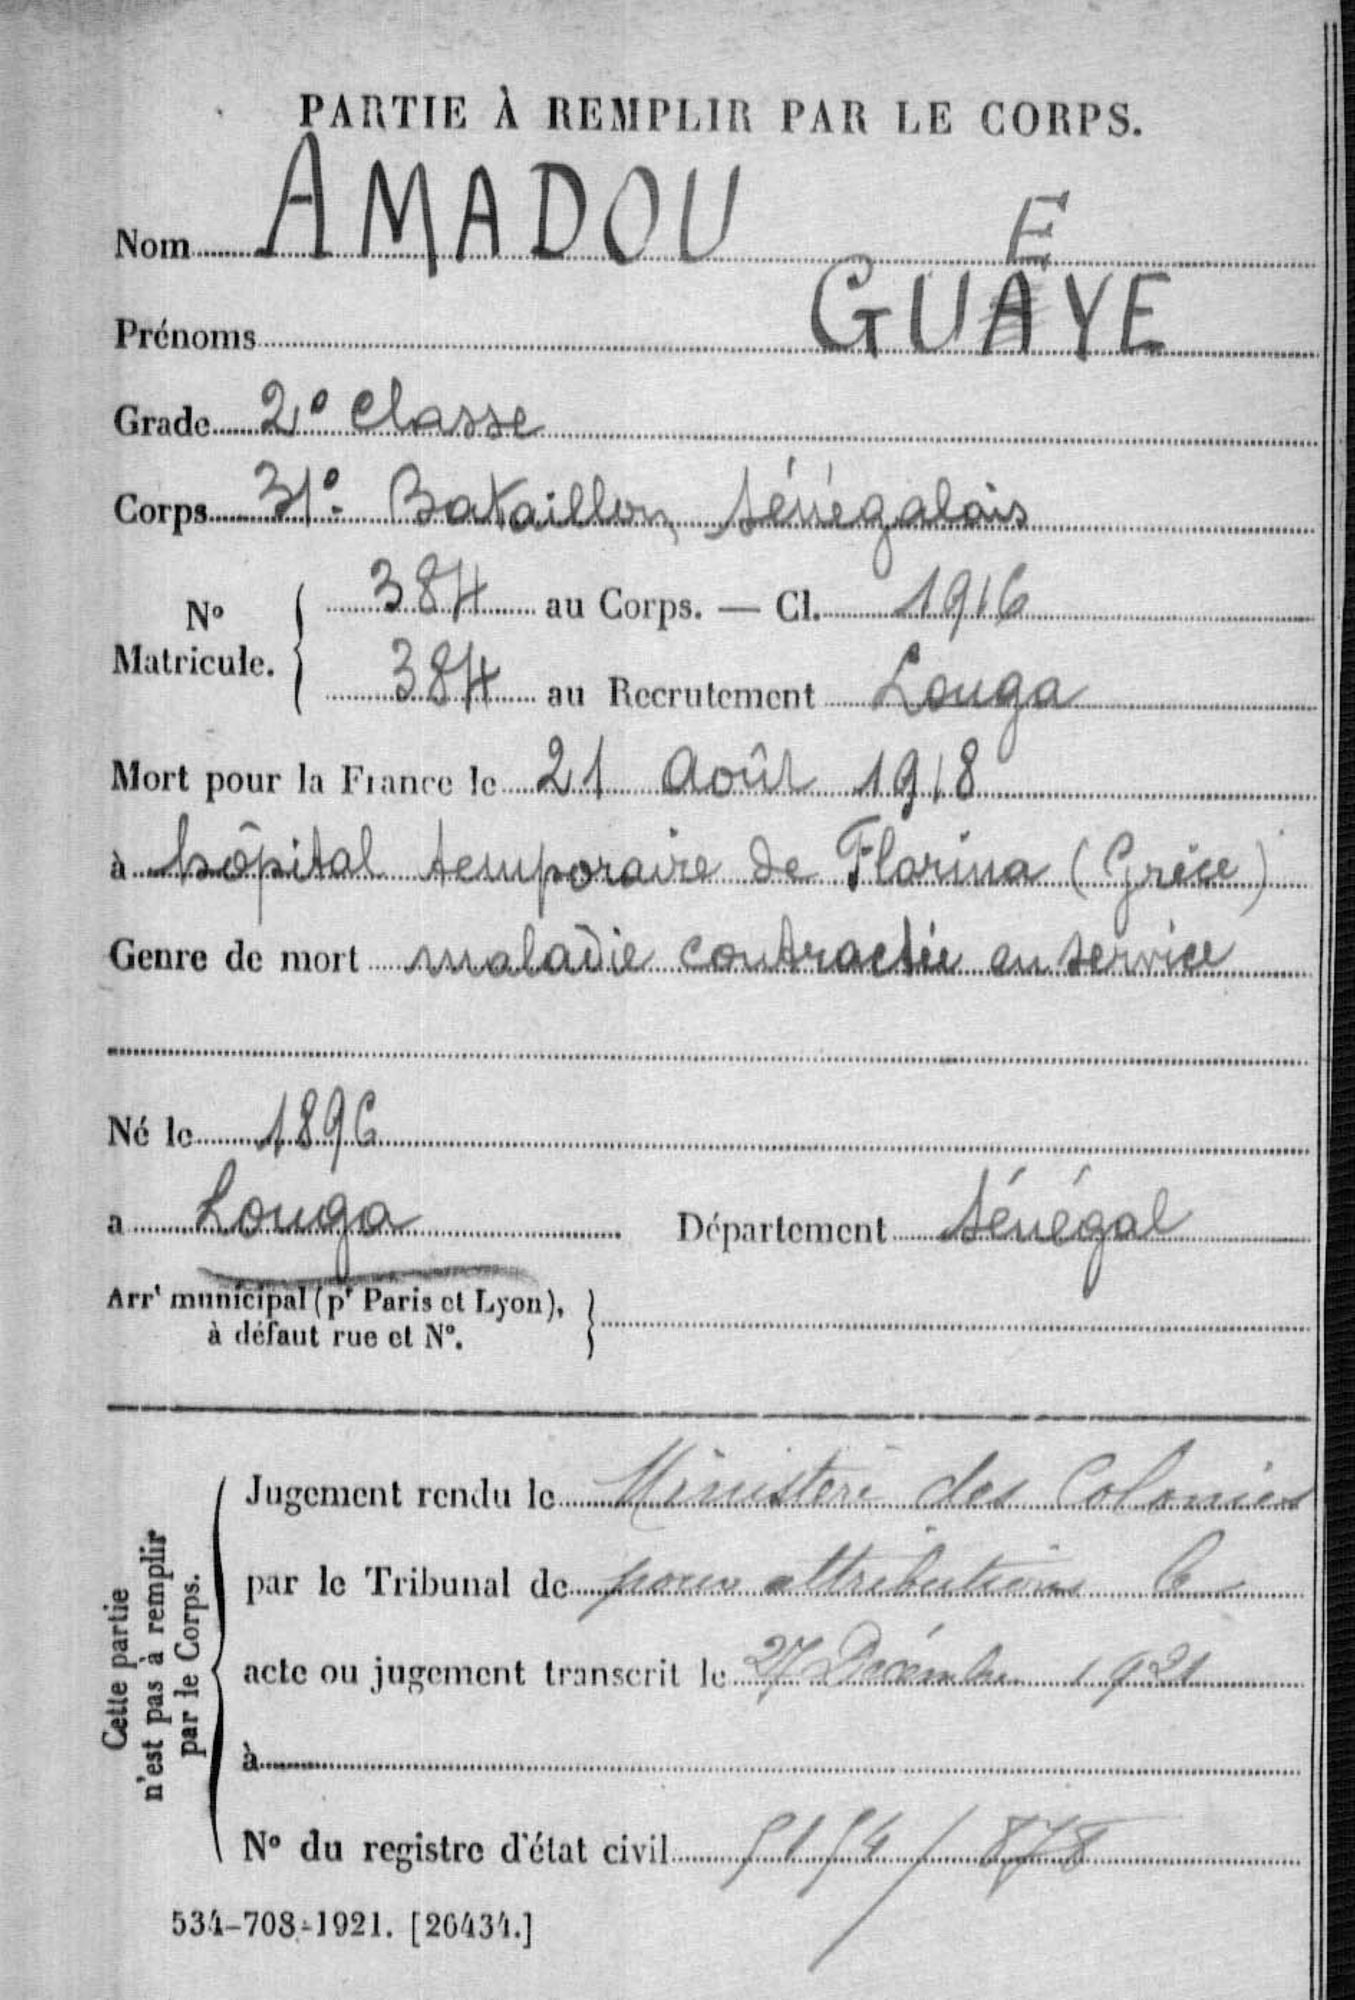 PARTIE À REMPLIR PAR LE CORPS.
Nom AMADOU
E
Prénoms GUAYE
Grade 2e classe
Corps 31e Bataillon Sénégalais
No Matricule. 384 au Corps. — Cl. 1916
384 au Recrutement Louga
Mort pour la France le 21 Août 1918
à hôpital temporaire de Florina (Grèce)
Genre de mort maladie contractée en service
Né le 1896
à Louga Département Sénégal
Arrt municipal (pr Paris et Lyon),
à défaut rue et No.
Cette partie
n'est pas à remplir
par le Corps.
Jugement rendu le Ministère des Colonies
par le Tribunal de pour attributions le
acte ou jugement transcrit le 27 Décembre 1921
à
No du registre d'état civil 5154/878
534-708-1921. [26434.]